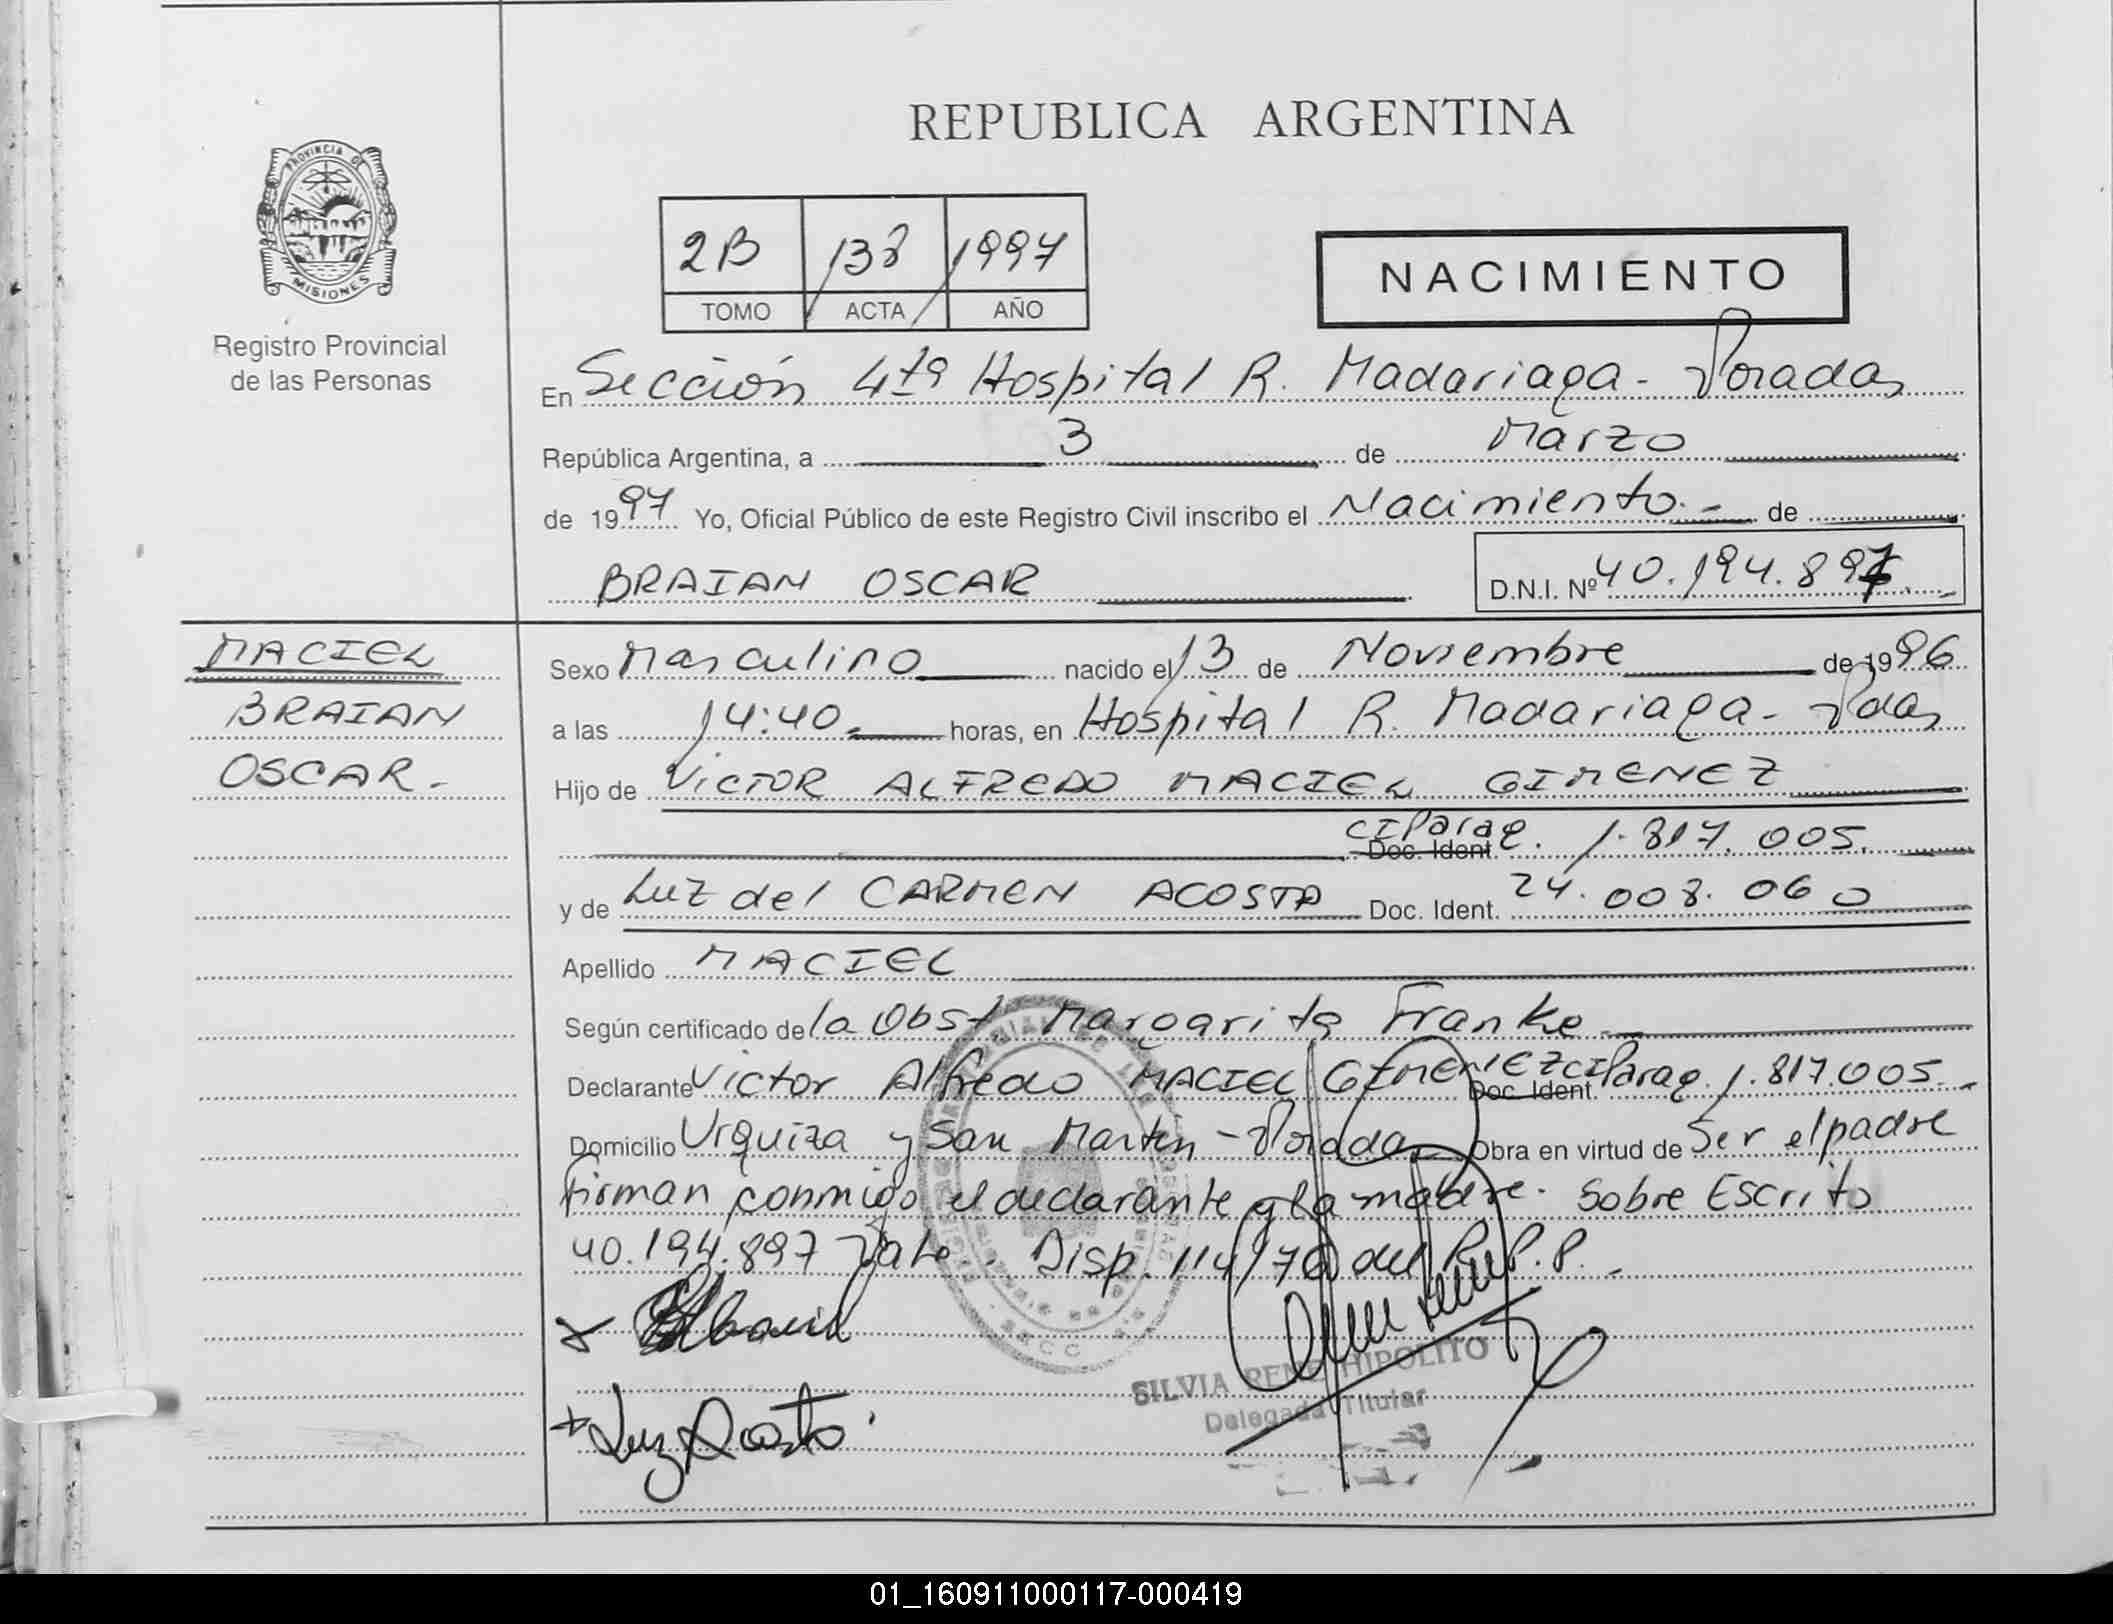 REPUBLICA ARGENTINA
PROVINCIA DE
MISIONES
Registro Provincial
de las Personas
2B 138 1997
TOMO ACTA AÑO
NACIMIENTO
En Sección 4ta Hospital R. Madariaga - Posadas
República Argentina, a 3 de Marzo
de 1997 Yo, Oficial Público de este Registro Civil inscribo el Nacimiento.- de
BRAIAN OSCAR D.N.I. Nº 40.194.897.-
MACIEL
BRAIAN
OSCAR.-
Sexo Masculino nacido el 13 de Noviembre de 1996
a las 14:40 horas, en Hospital R. Madariaga - Pdas
Hijo de VICTOR ALFREDO MACIEL GIMENEZ
CIParag. Doc. Ident. 1.817.005.
y de Luz del CARMEN ACOSTA Doc. Ident. 24.008.060
Apellido MACIEL
Según certificado de la Obst Margarita Franke
Declarante Victor Alfredo MACIEL GIMENEZ CIParag. Doc. Ident. 1.817.005.-
Domicilio Urquiza y San Martin - Posadas Obra en virtud de Ser el padre
firman conmigo el declarante y la madre. Sobre Escrito
40.194.897 Vale. Disp. 114/70 del R.P.P.-
Luz Acosta.
SILVIA RENE HIPOLITO
Delegada Titular
01_160911000117-000419